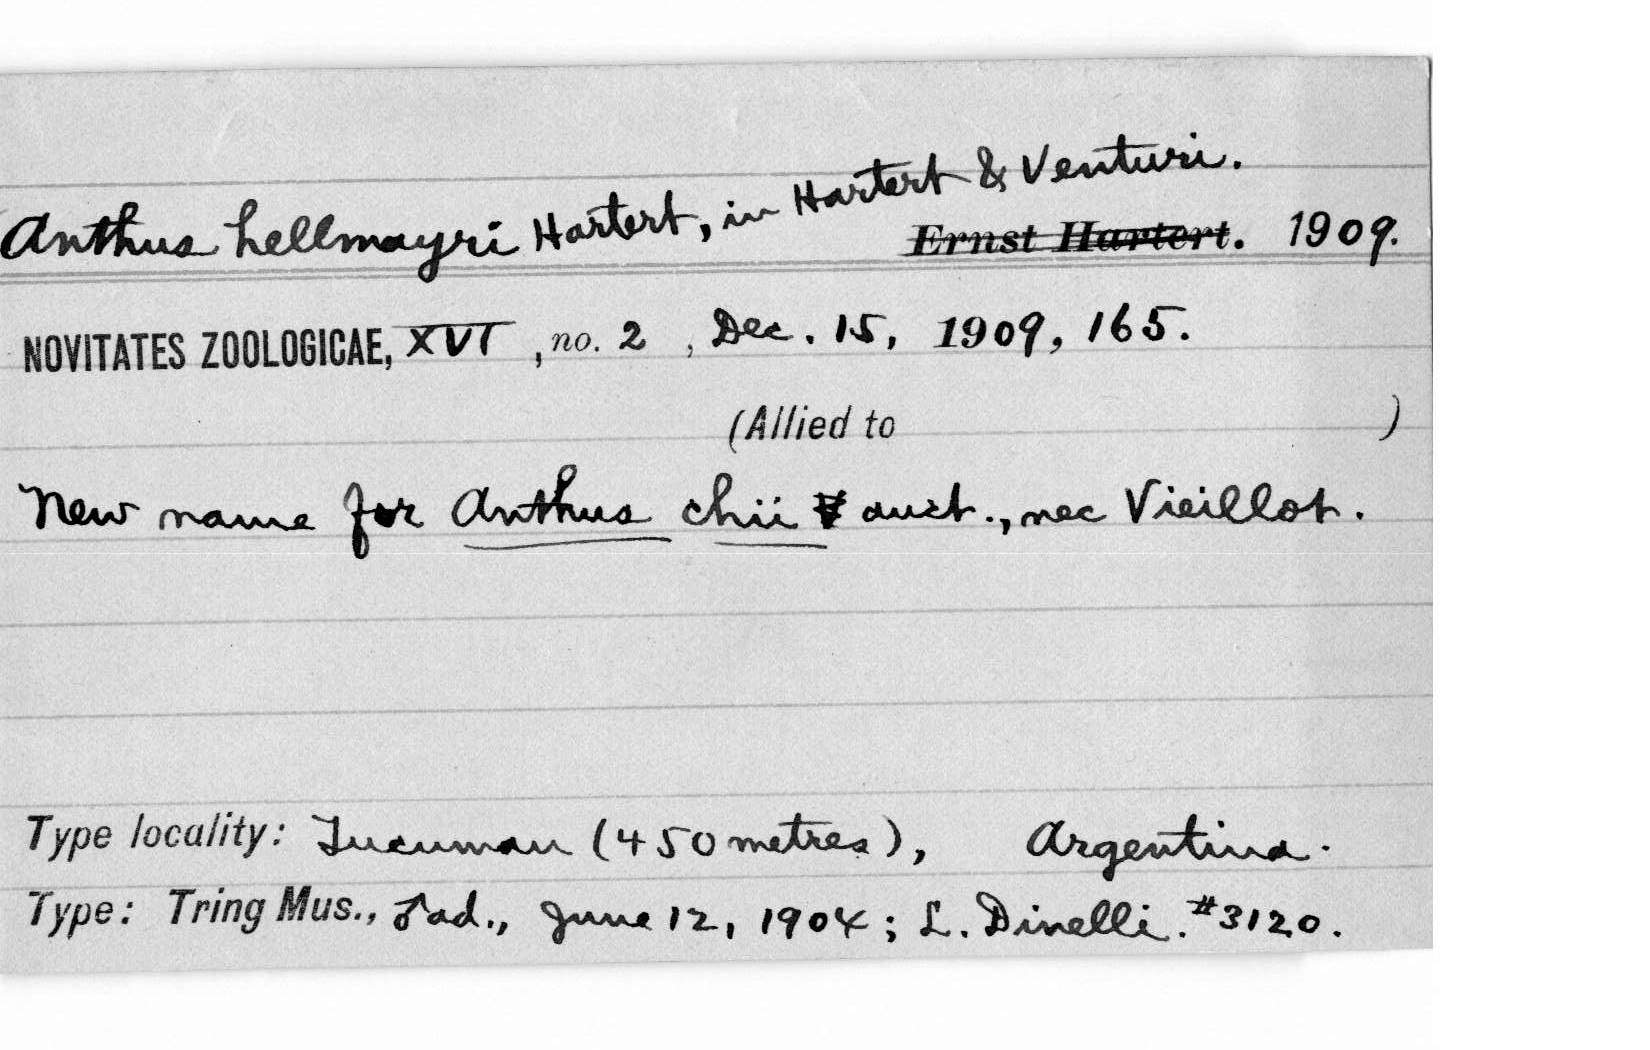 Anthus hellmayri Hartert, in Hartert & Venturi.
Ernst Hartert. 1909.
NOVITATES ZOOLOGICAE, XVI, no. 2, Dec. 15, 1909, 165.
(Allied to )
New name for Anthus chii auct., nec Vieillot.
Type locality: Tucuman (450 metres), Argentina.
Type: Tring Mus., ♂ ad., June 12, 1904; L. Dinelli. #3120.